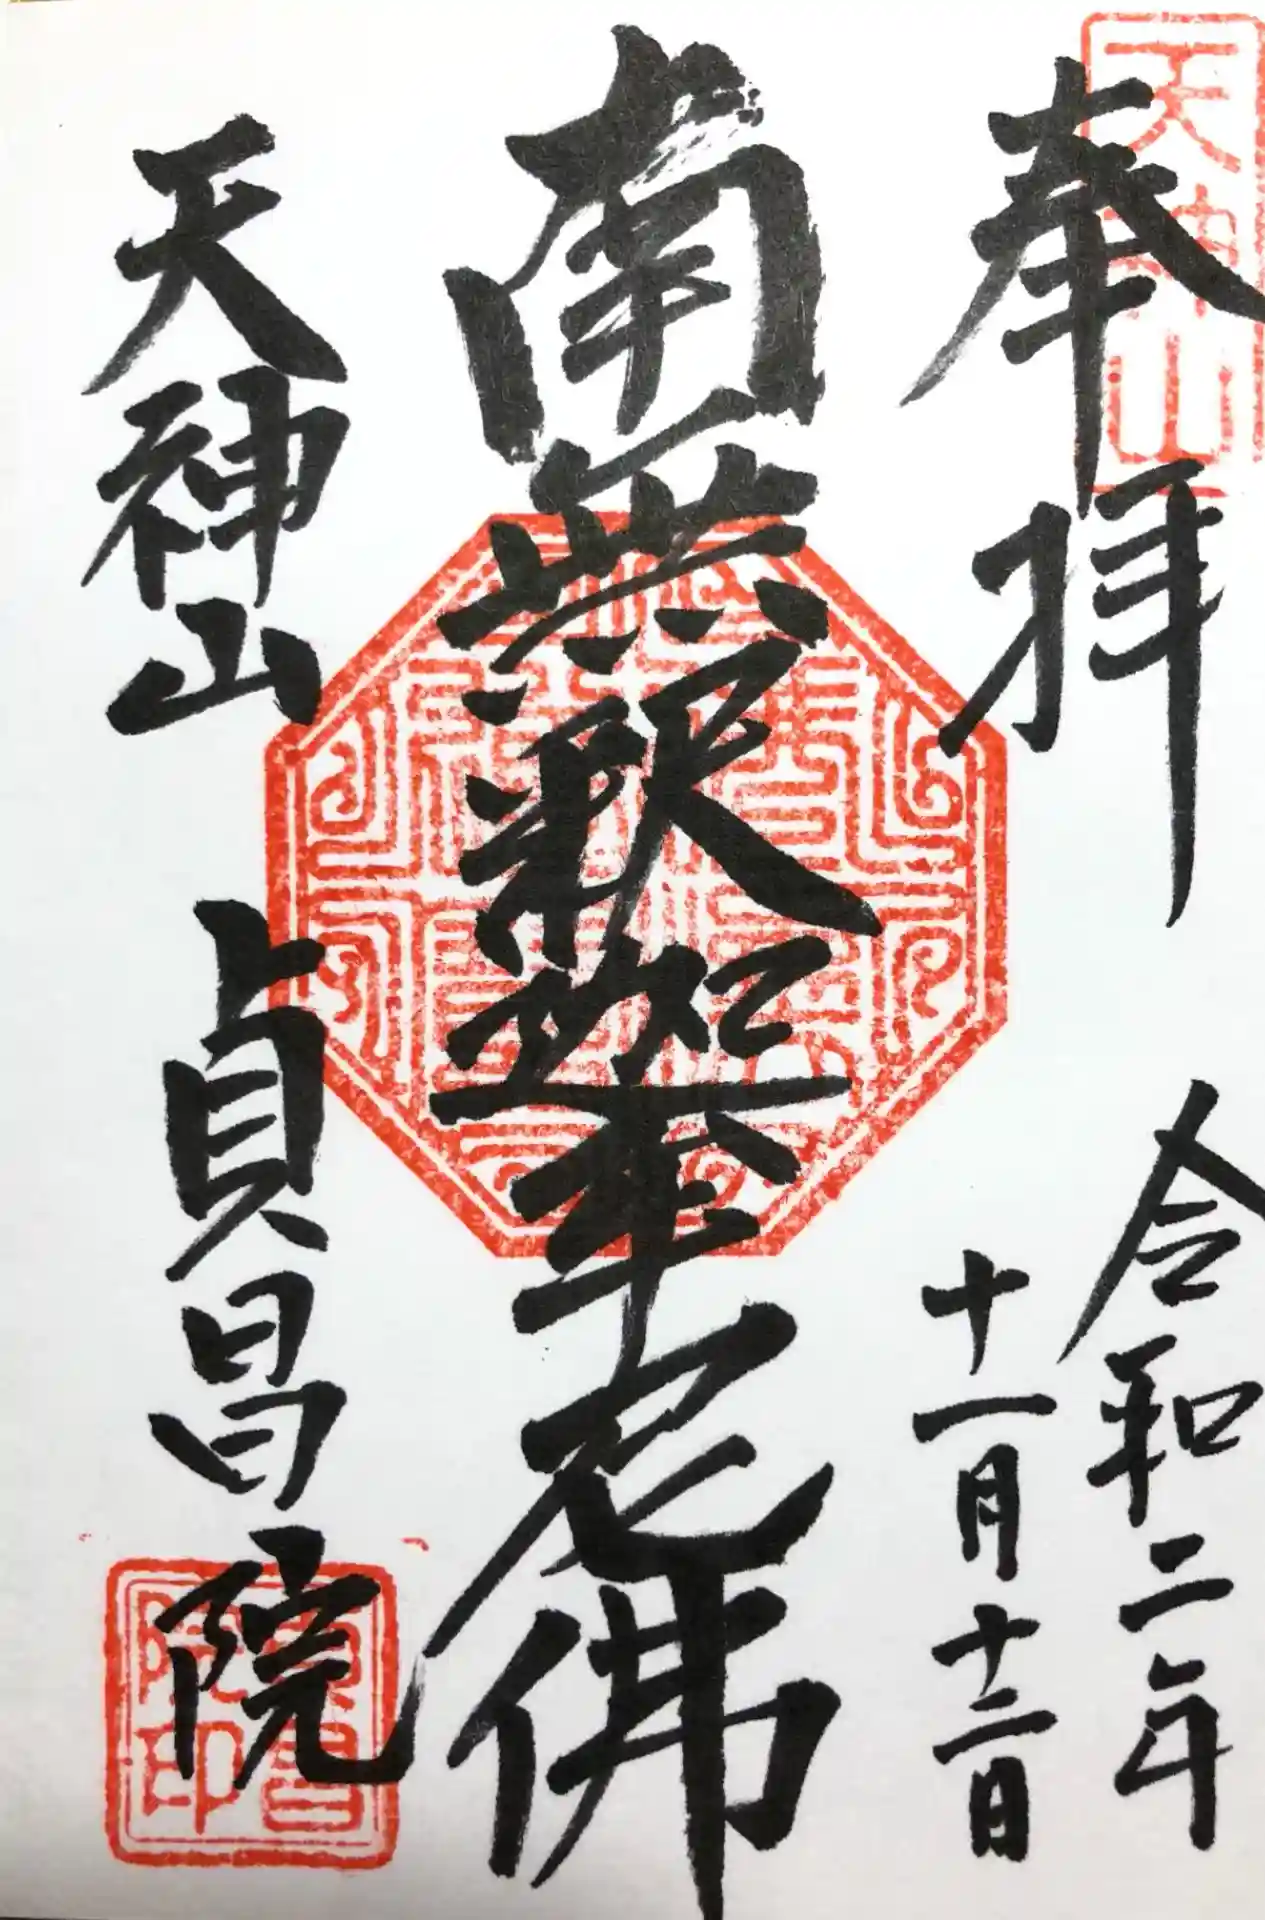 奉拝
令和二年
十一月十二日
南無釈迦牟尼佛
天神山 貞昌院
天神山
貞昌院印